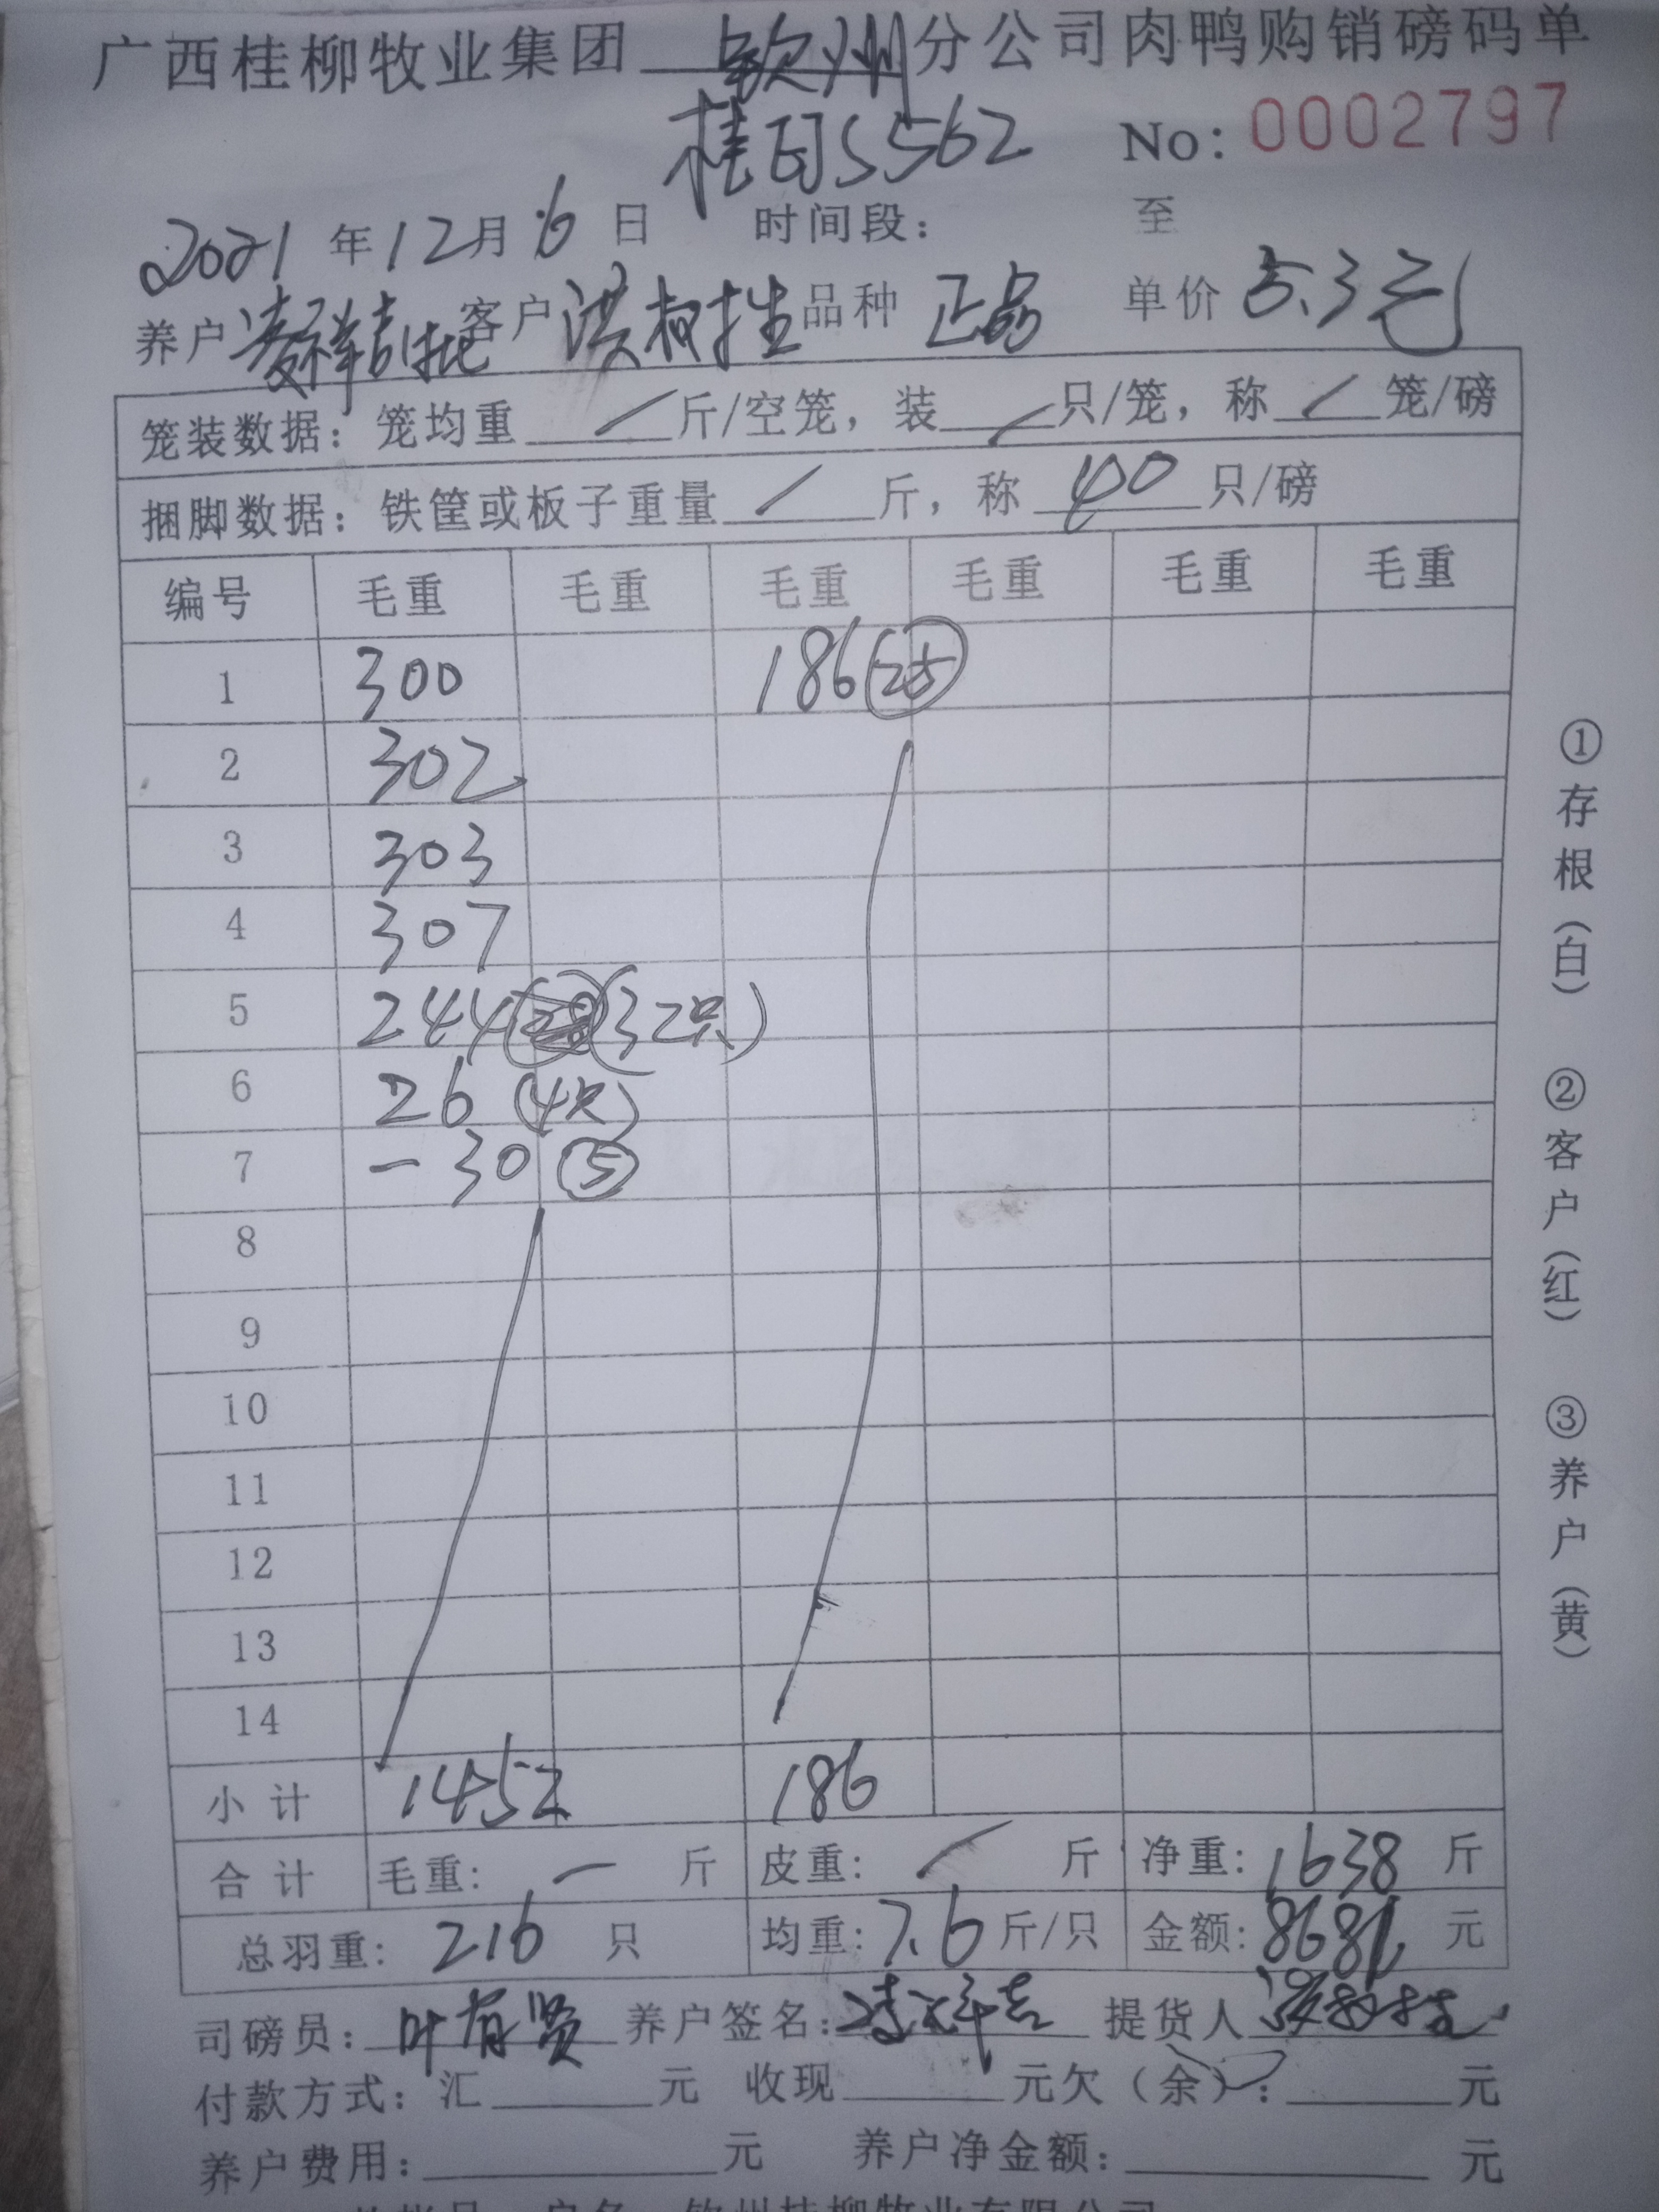 广西桂柳牧业集团 钦州 分公司肉鸭购销磅码单
S562 No: 0002797
2021 年 12 月 6 日 时间段: 至
养户 客户 洪树挂 品种 正品 单价 5.3元
笼装数据: 笼均重 / 斤/空笼, 装 / 只/笼, 称 / 笼/磅
捆脚数据: 铁筐或板子重量 / 斤, 称 40 只/磅
编号 毛重 毛重 毛重 毛重 毛重 毛重
1 300 186 (25)
2 302
3 303
4 307
5 244 (32只)
6 26 (4只)
7 -30 (5)
8
9
10
11
12
13
14
小计 1452 186
合计 毛重: — 斤 皮重: / 斤 净重: 1638 斤
总羽重: 216 只 均重: 7.6 斤/只 金额: 8681 元
司磅员: 叶有贤 养户签名: 提货人
付款方式: 汇 元 收现 元欠(余): 元
养户费用: 元 养户净金额: 元
户名: 钦州桂柳牧业有限公司
①存根(白) ②客户(红) ③养户(黄)